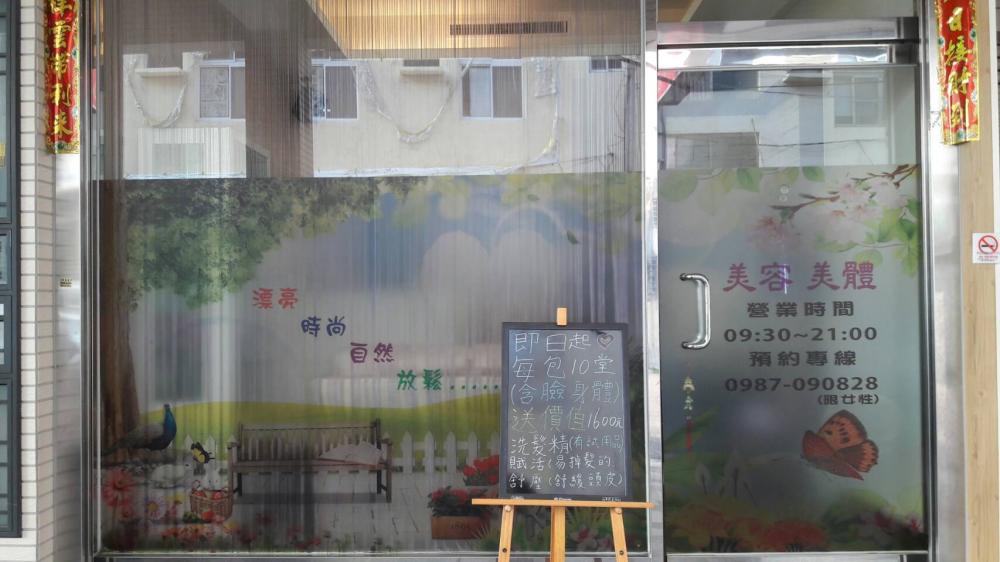 雲朔利來
日接財到
漂亮
時尚
自然
放鬆......
即日起♡
每包10堂
(含臉身體)
送價值1600元
洗髮精(有試用品)
賦活(易掉髮的
舒壓(舒緩頭皮)
美容 美體
營業時間
09:30~21:00
預約專線
0987-090828
(限女性)